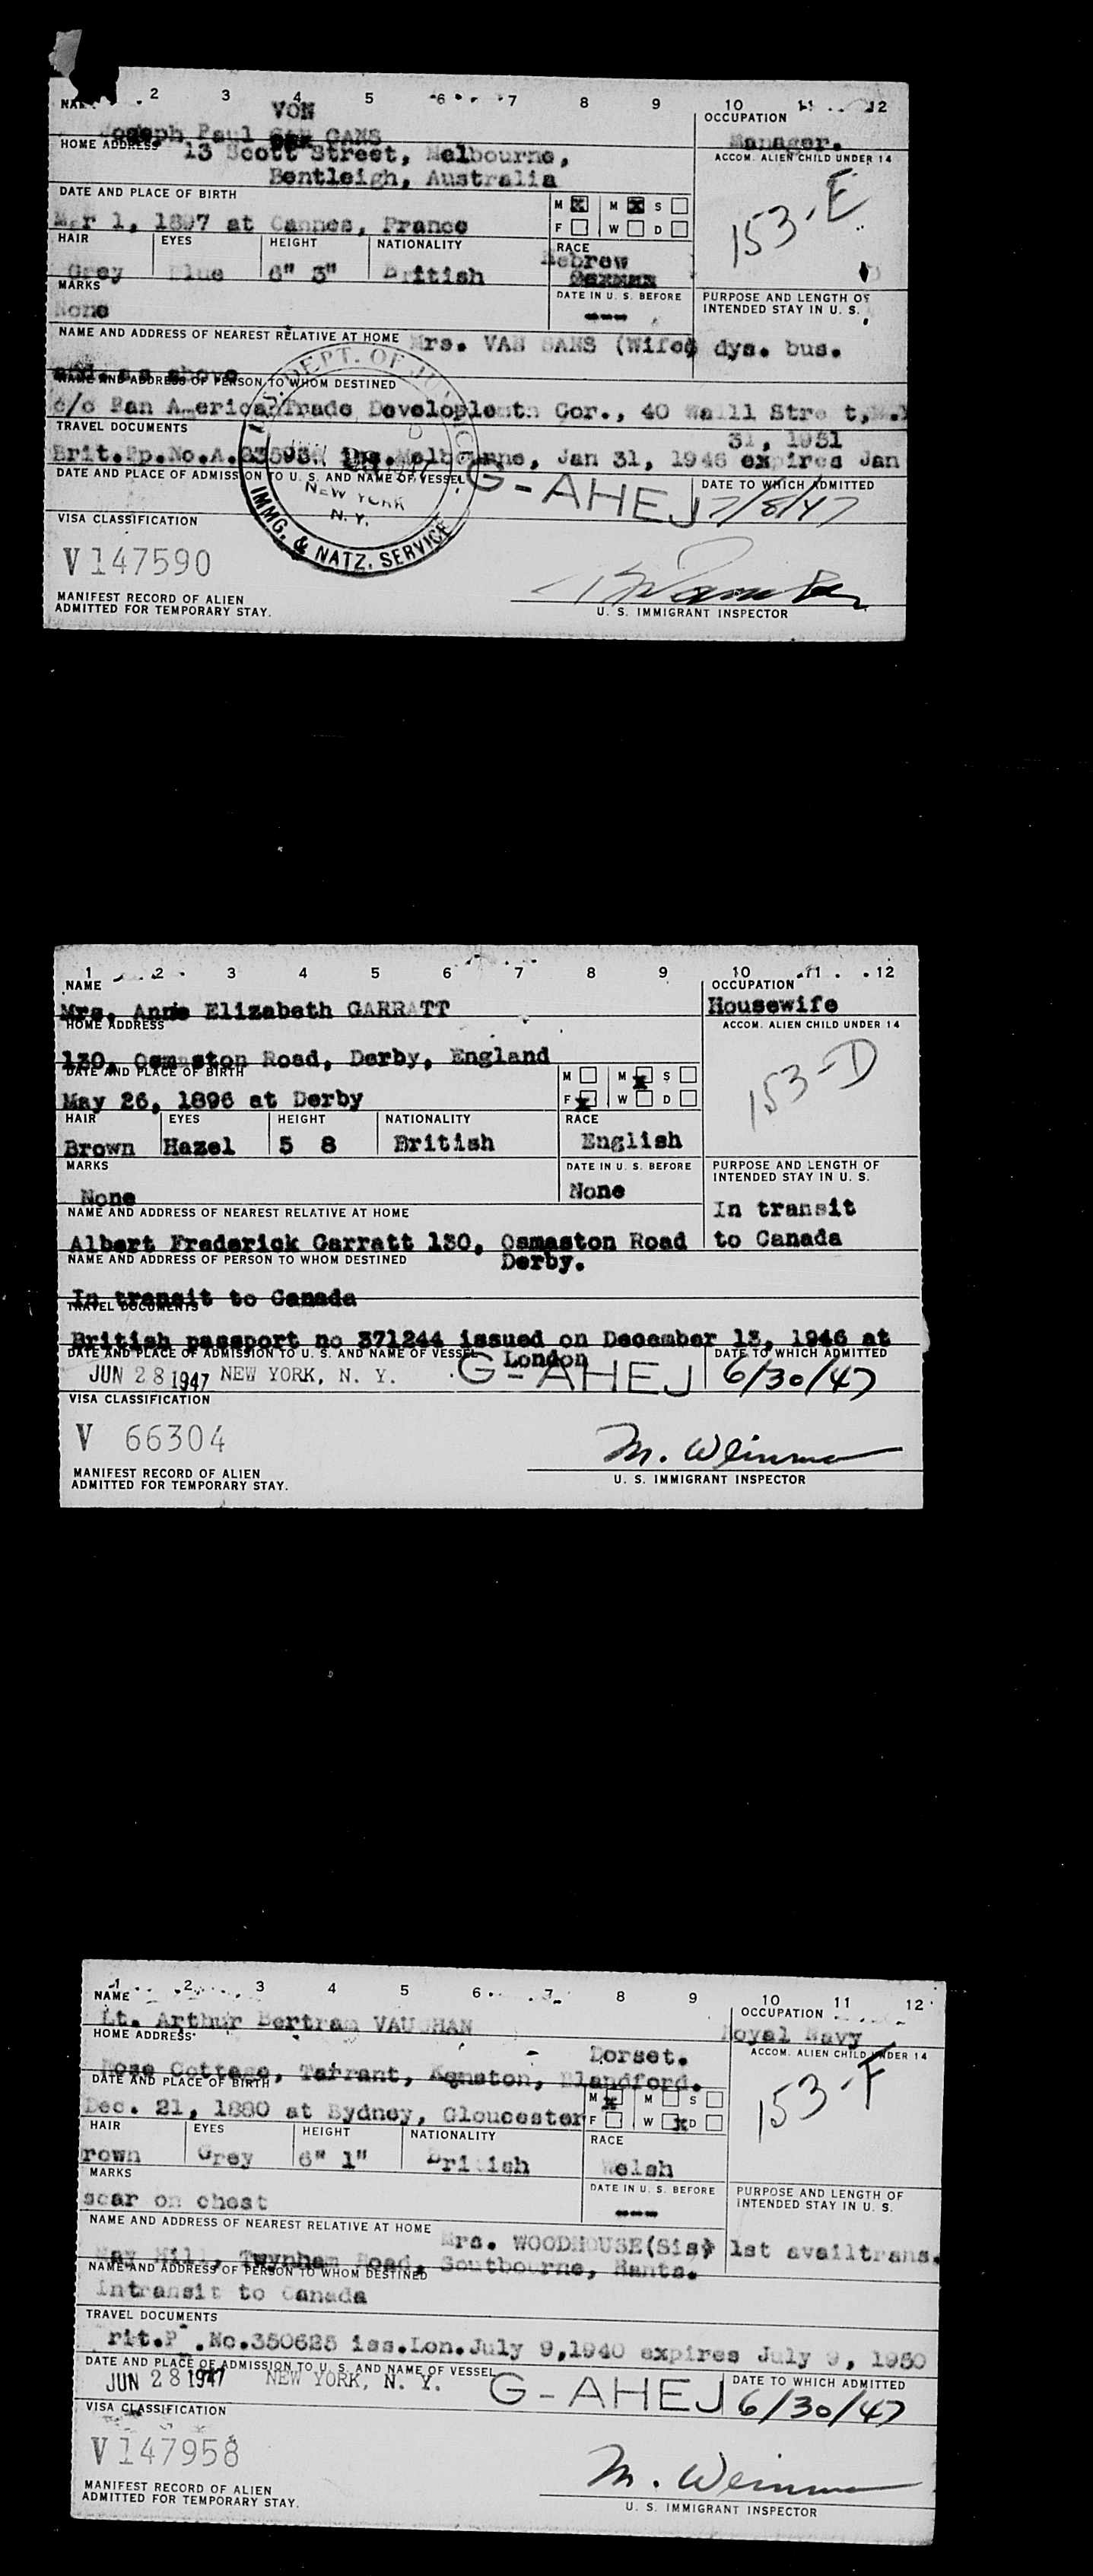 2 3 4 5 6 7 8 9 10 11 12
VON
OCCUPATION
Joseph Paul GANS
Manager.
HOME ADDRESS 13 Scott Street, Melbourne,
ACCOM. ALIEN CHILD UNDER 14
Bentleigh, Australia
153-E
DATE AND PLACE OF BIRTH
M X M X S
Mar 1, 1897 at Cannes, France
F W D
HAIR EYES HEIGHT NATIONALITY RACE
Hebrew
Grey Blue 6" 3" British
MARKS
DATE IN U. S. BEFORE PURPOSE AND LENGTH OF
INTENDED STAY IN U. S.
None ---
NAME AND ADDRESS OF NEAREST RELATIVE AT HOME Mrs. VAN GANS (Wife) dys. bus.
as above
NAME AND ADDRESS OF PERSON TO WHOM DESTINED
c/o Pan America Trade Cor., 40 Wall Street, N.Y
TRAVEL DOCUMENTS
31, 1951
Brit.Pp.No.A. iss.Melbourne, Jan 31, 1946 expires Jan
DATE AND PLACE OF ADMISSION TO U. S. AND NAME OF VESSEL
G-AHEJ
DATE TO WHICH ADMITTED
7/8/47
DEPT. OF JUSTICE
NEW YORK
N. Y.
IMMG. & NATZ. SERVICE
VISA CLASSIFICATION
V 147590
MANIFEST RECORD OF ALIEN
ADMITTED FOR TEMPORARY STAY.
U. S. IMMIGRANT INSPECTOR
1 2 3 4 5 6 7 8 9 10 11 12
NAME OCCUPATION
Mrs. Anne Elizabeth GARRATT Housewife
HOME ADDRESS ACCOM. ALIEN CHILD UNDER 14
130, Osmaston Road, Derby, England
153-D
DATE AND PLACE OF BIRTH
M M X S
May 26, 1896 at Derby
F X W D
HAIR EYES HEIGHT NATIONALITY RACE
Brown Hazel 5 8 British English
MARKS DATE IN U. S. BEFORE PURPOSE AND LENGTH OF
INTENDED STAY IN U. S.
None None
In transit
NAME AND ADDRESS OF NEAREST RELATIVE AT HOME
Albert Frederick Garratt 130, Osmaston Road to Canada
NAME AND ADDRESS OF PERSON TO WHOM DESTINED Derby.
In transit to Canada
TRAVEL DOCUMENTS
British passport no 371244 issued on December 13, 1946 at
DATE AND PLACE OF ADMISSION TO U. S. AND NAME OF VESSEL London DATE TO WHICH ADMITTED
JUN 28 1947 NEW YORK, N. Y. G-AHEJ 6/30/47
VISA CLASSIFICATION
V 66304
M. Weinman
MANIFEST RECORD OF ALIEN
ADMITTED FOR TEMPORARY STAY.
U. S. IMMIGRANT INSPECTOR
1 2 3 4 5 6 7 8 9 10 11 12
NAME OCCUPATION
Lt. Arthur Bertram VAUGHAN Royal Navy
HOME ADDRESS ACCOM. ALIEN CHILD UNDER 14
Dorset.
Rose Cottage, Tarrant, Kenston, Blandford.
153-F
DATE AND PLACE OF BIRTH
M X M S
Dec. 21, 1880 at Sydney, Gloucester
F W X D
HAIR EYES HEIGHT NATIONALITY RACE
rown Grey 6" 1" British Welsh
MARKS DATE IN U. S. BEFORE PURPOSE AND LENGTH OF
INTENDED STAY IN U. S.
scar on chest ---
NAME AND ADDRESS OF NEAREST RELATIVE AT HOME
Mrs. WOODHOUSE(Sis) 1st availtrans.
May Hill, Twynham Road, Soutbourne, Hants.
NAME AND ADDRESS OF PERSON TO WHOM DESTINED
Intransit to Canada
TRAVEL DOCUMENTS
rit.P .No.350625 iss.Lon.July 9,1940 expires July 9, 1950
DATE AND PLACE OF ADMISSION TO U. S. AND NAME OF VESSEL DATE TO WHICH ADMITTED
JUN 28 1947 NEW YORK, N. Y. G-AHEJ 6/30/47
VISA CLASSIFICATION
V 147958
M. Weinman
MANIFEST RECORD OF ALIEN
ADMITTED FOR TEMPORARY STAY.
U. S. IMMIGRANT INSPECTOR